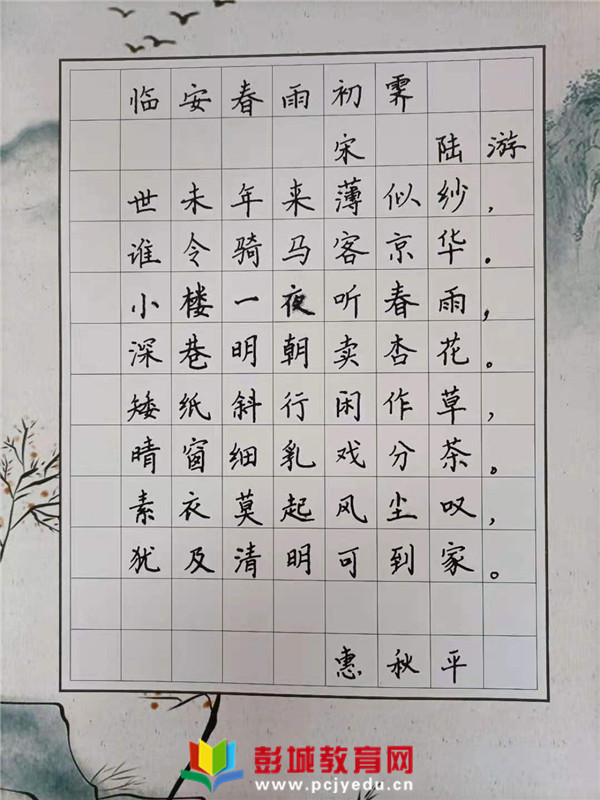 临安春雨初霁
宋 陆游
世未年来薄似纱，
谁令骑马客京华。
小楼一夜听春雨，
深巷明朝卖杏花。
矮纸斜行闲作草，
晴窗细乳戏分茶。
素衣莫起风尘叹，
犹及清明可到家。
惠秋平
彭城教育网
www.pcjyedu.cn